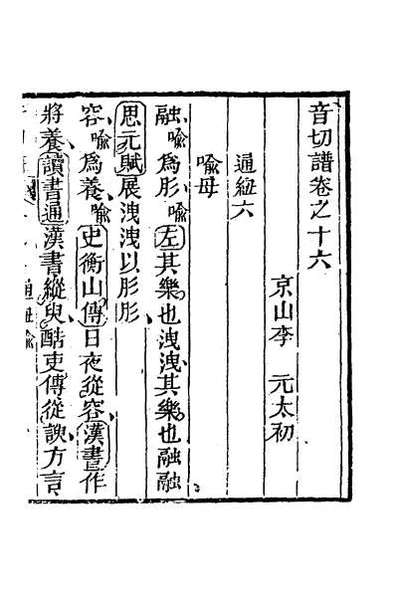 音切譜卷之十六
京山李　元太初
通紐六
喻母
融喻爲肜喻左其樂也洩洩其樂也融融
思元賦展洩洩以肜肜
容喻爲養喻史衡山傳日夜從容漢書作
將養讀書通漢書縱臾酷吏傳從諛方言